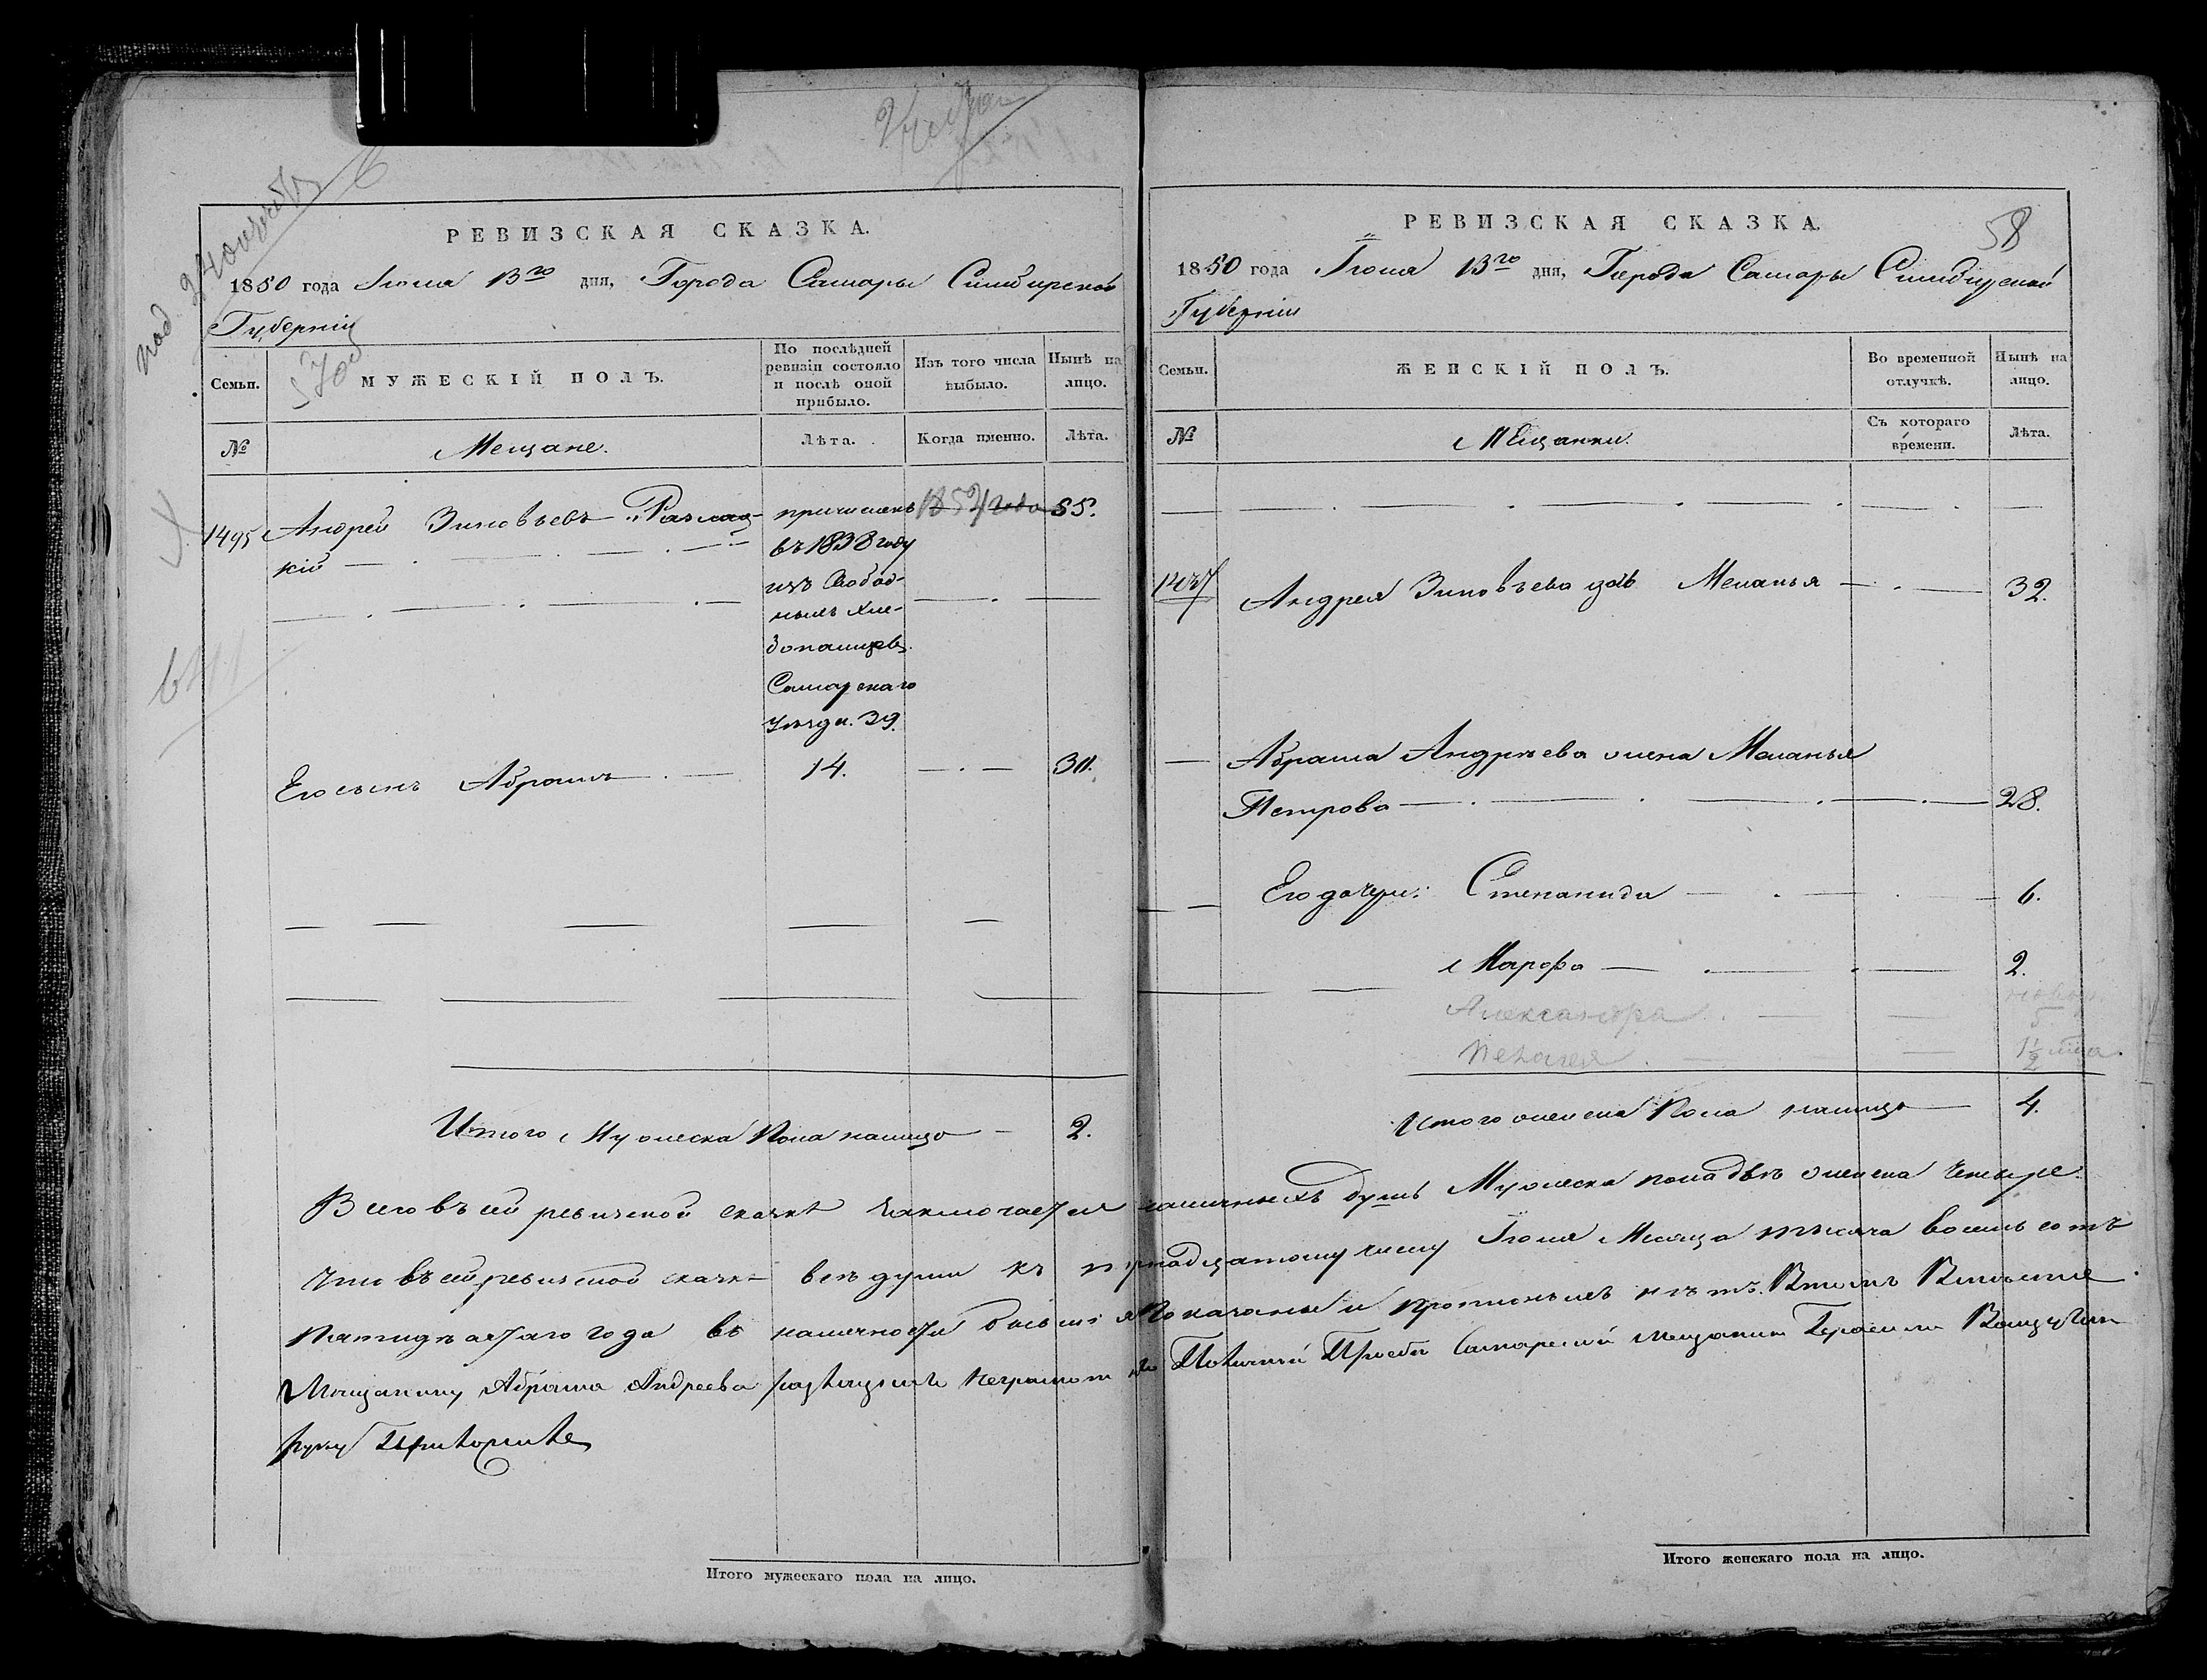 РЕВИЗСКАЯ СКАЗКА.
1850 года Іюня 13го дня, Города Самары Симбирской
Губерніи
Семьи.
МУЖЕСКІЙ ПОЛЪ.
По послѣдней
ревизіи состояло
и послѣ оной
прибыло.
Изъ того числа
выбыло.
Нынѣ на
лицо.
№
Мещане.
Лѣта.
Когда именно.
Лѣта.
1495 Андрей Зиновьевъ причисленъ 1854 года 55.
кій въ 1838 году
изъ Свобод-
ныхъ Хлѣ-
бопашцевъ
Самарскаго
Уѣзда. 39.
Его сынъ Абрамъ 14. 30.
Итого Мужеска Пола налицо 2.
РЕВИЗСКАЯ СКАЗКА.
58
1850 года Іюня 13го дня, Города Самары Симбирской
Губерніи
Семьи.
ЖЕНСКІЙ ПОЛЪ.
Во временной
отлучкѣ.
Нынѣ на
лицо.
№
Мещанки.
Съ котораго
времени.
Лѣта.
Андрея Зиновьева дочь Меланья 32.
Абрама Андрѣева жена Меланья
Петрова 28.
Его дочери: Степанида 6.
Марфа 2.
Александра 5
Пелагея 1½ лѣта.
Итого женска Пола налицо 4.
Всего въ сей ревизской сказкѣ заключается наличныхъ душъ Мужеска пола двѣ женска четыре.
Что въ сей ревизской сказкѣ всѣ души къ тринадцатому числу Іюня Месяца тысяча восемь сотъ
пятидѣсятаго года въ наличности бывшія показаны и прописныхъ нѣтъ. Въ томъ Вместо
Мещанина Абрама Андреева неграмот Поличной Прозбе Самарской мещанин Герасим
руку Приложиле
Итого мужескаго пола на лицо.
Итого женскаго пола на лицо.